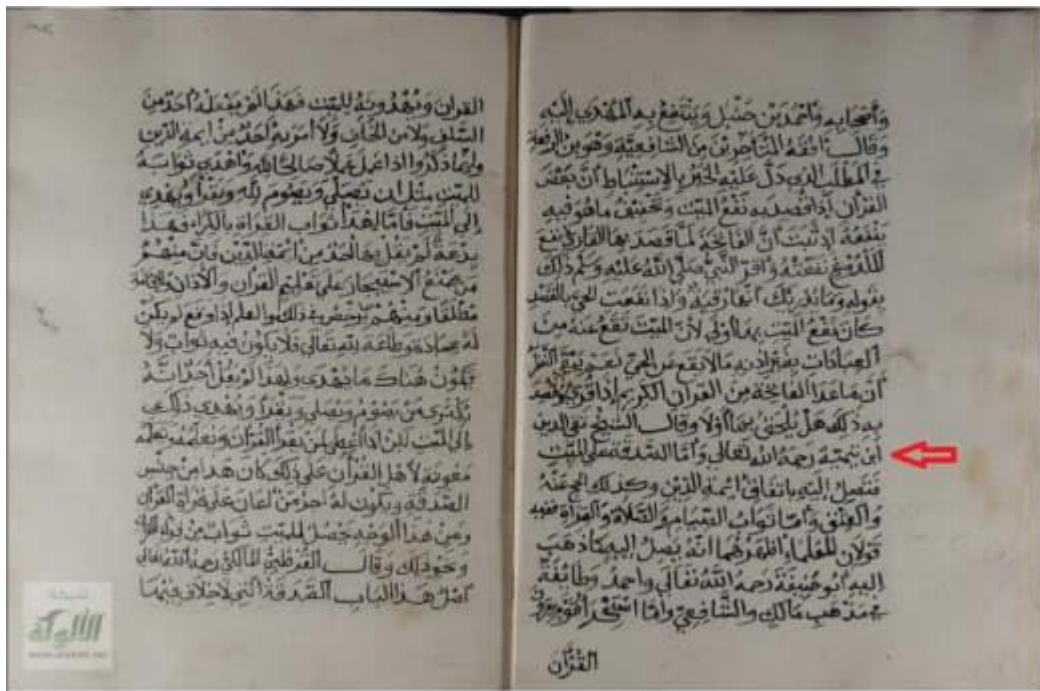 وأصحابه وأحمد بن حنبل وينتفع به المهدي إليه
وقال أفقه المتأخرين من الشافعية وهو بن الرفعة
في المطلب الذي دل عليه الخبر بالاستنباط أن بعض
القرآن إذا قصد به نفع الميت وتخفيف ما هو فيه
ينفعه إذ ثبت أن الفاتحة لما قصد بها القارئ نفع
الملدوغ نفعته وأقر النبي صلى الله عليه وسلم ذلك
بقوله وما يدريك أنها رقية وإذا نفعت الحي بالقصد
كان نفع الميت بها أولى لأن الميت تقع عنه من
العبادات بغير إذنه ما لا يقع عن الحي نعم يبقى النظر
أن ما عدا الفاتحة من القرآن الكريم إذا قرئ وقصد
به ذلك هل يلحق بها أولا وقال الشيخ تقي الدين
ابن تيمية رحمه الله تعالى وأما الصدقة على الميت
فتصل إليه باتفاق أئمة الدين وكذلك الحج عنه
والعتق وأما ثواب الصيام والصلاة والقراة ففيه
قولان للعلماء أظهرهما أنه يصل إليه كما ذهب
إليه أبو حنيفة رحمه الله تعالى وأحمد وطائفة
من مذهب مالك والشافعي وأما استئجار قوم يقرون
القرآن
القران ويهدونه للميت فهذا لم يفعله أحد من
السلف ولا من الخلف ولا أمر به أحد من أئمة الدين
وإنما ذكروا إذا عمل عملا صالحا لله وأهدى ثوابه
للميت مثل أن يصلي ويصوم لله ويقرأ ويهدي
إلى الميت فأما إهدا ثواب القراة بالكراء فهذا
بدعة لم يقل بها أحد من أئمة الدين فإن منهم
من منع الاستيجار على تعليم القران والأذان
مطلقا ومنهم من رخص في ذلك والعلم إذا وقع لم يكن
له عبادة وطاعة لله تعالى فلا يكون فيه ثواب ولا
يكون هناك ما يهدى ولهذا لم يقل أحد أنه
يكتري من يصوم ويصلي ويقرأ ويهدي ذلك
إلى الميت لكن إذا أعطي لمن يقرأ القرآن ويعلمه ويتعلمه
معونة لأهل القرآن على ذلك كان هذا من جنس
الصدقة ويكون له أجر من أعان على قراة القرآن
ومن هذا الوجه حصل للميت ثواب من
ونحو ذلك وقال القرطبي المالكي رحمه الله تعالى
أصل هذا الباب الصدقة التي لا خلاف فيها
شبكة
الألوكة
www.alukah.net